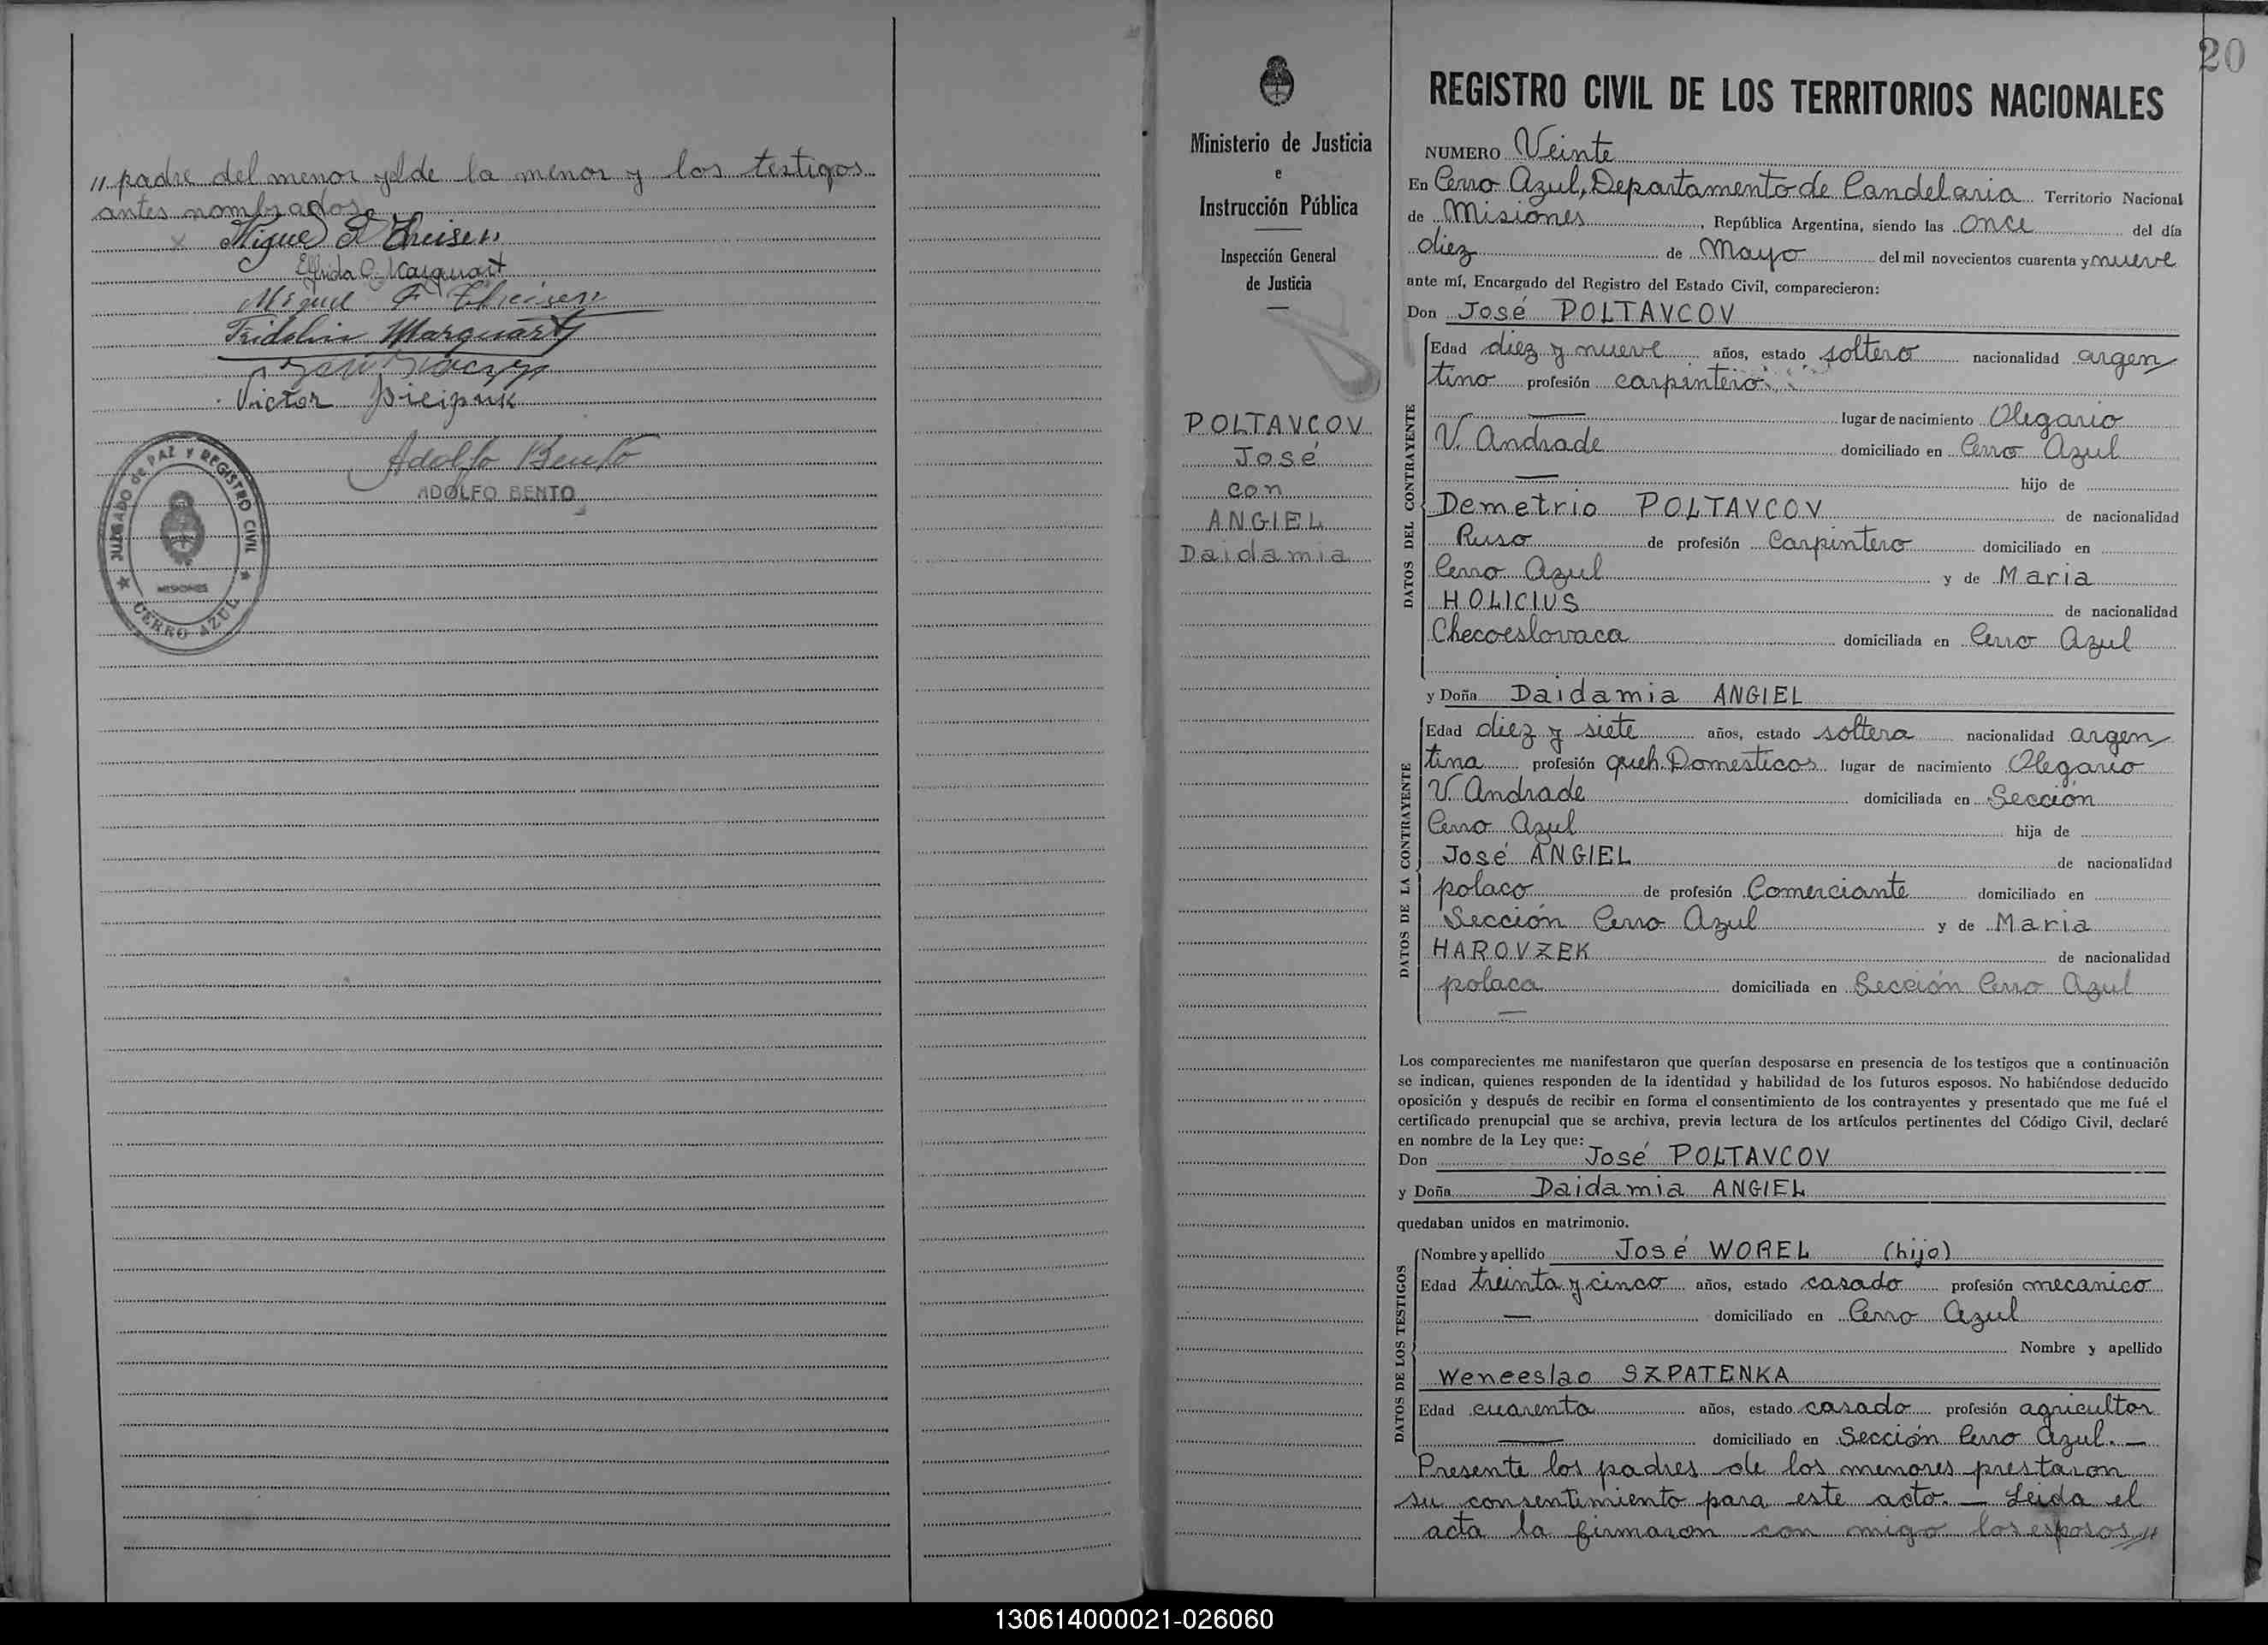 " padre del menor y el de la menor y los testigos
antes nombrados
Miguel A Theisen
Elfrida C. Marquart
Miguel F. Theisen
Fridolin Marquart
Victor
Adolfo Bento
ADOLFO BENTO
JUZGADO de PAZ Y REGISTRO CIVIL
MISIONES
CERRO AZUL
Ministerio de Justicia
e
Instrucción Pública
Inspección General
de Justicia
POLTAVCOV
José
con
ANGIEL
Daidamia
20
REGISTRO CIVIL DE LOS TERRITORIOS NACIONALES
NUMERO Veinte
En Cerro Azul, Departamento de Candelaria Territorio Nacional
de Misiones, República Argentina, siendo las once del día
diez de Mayo del mil novecientos cuarenta y nueve
ante mí, Encargado del Registro del Estado Civil, comparecieron:
Don José POLTAVCOV
DATOS DEL CONTRAYENTE
Edad diez y nueve años, estado soltero nacionalidad argen
tino profesión carpintero
lugar de nacimiento Olegario
V. Andrade domiciliado en Cerro Azul
hijo de
Demetrio POLTAVCOV de nacionalidad
Ruso de profesión Carpintero domiciliado en
Cerro Azul y de Maria
HOLICIUS de nacionalidad
Checoeslovaca domiciliada en Cerro Azul
y Doña Daidamia ANGIEL
DATOS DE LA CONTRAYENTE
Edad diez y siete años, estado soltera nacionalidad argen
tina profesión queh. Domesticos lugar de nacimiento Olegario
V. Andrade domiciliada en Sección
Cerro Azul hija de
José ANGIEL de nacionalidad
polaco de profesión Comerciante domiciliado en
Sección Cerro Azul y de Maria
HAROVZEK de nacionalidad
polaca domiciliada en Sección Cerro Azul
Los comparecientes me manifestaron que querían desposarse en presencia de los testigos que a continuación
se indican, quienes responden de la identidad y habilidad de los futuros esposos. No habiéndose deducido
oposición y después de recibir en forma el consentimiento de los contrayentes y presentado que me fué el
certificado prenupcial que se archiva, previa lectura de los artículos pertinentes del Código Civil, declaré
en nombre de la Ley que:
Don José POLTAVCOV
y Doña Daidamia ANGIEL
quedaban unidos en matrimonio.
DATOS DE LOS TESTIGOS
Nombre y apellido José WOREL (hijo)
Edad treinta y cinco años, estado casado profesión mecanico
domiciliado en Cerro Azul
Nombre y apellido
Weneeslao SZPATENKA
Edad cuarenta años, estado casado profesión agricultor
domiciliado en Sección Cerro Azul. —
Presente los padres de los menores prestaron
su consentimiento para este acto. — Leida el
acta la firmaron con migo los esposos "
130614000021-026060